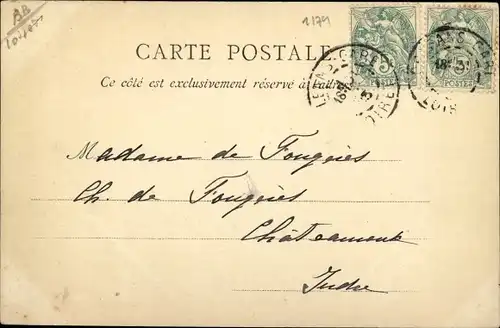 BB
1179
CARTE POSTALE
Ce côté est exclusivement réservé à l'adr
Madame de Fougères
Ch. de Fougères
Châteaumont
Indre